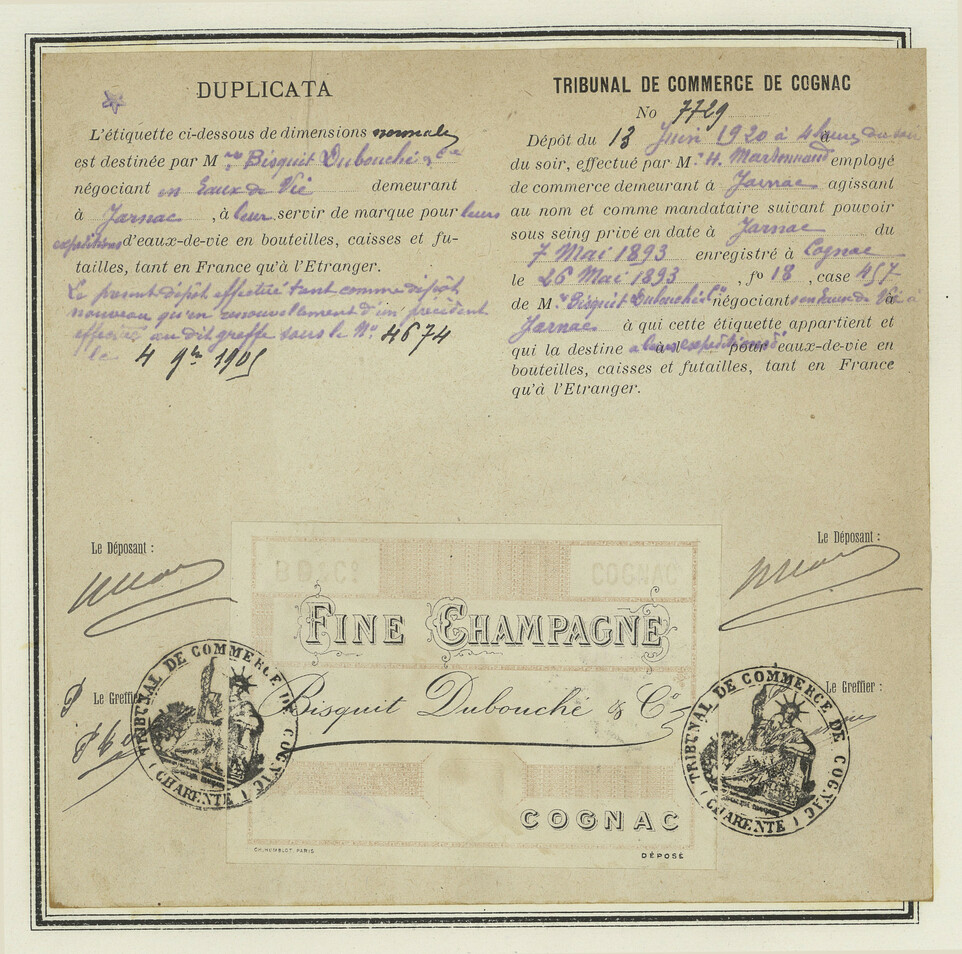 DUPLICATA
L'étiquette ci-dessous de dimensions normales
est destinée par Mrs Bisquit Dubouché & Cie
négociant en Eaux de Vie demeurant
à Jarnac, à leur servir de marque pour leurs
expéditions d'eaux-de-vie en bouteilles, caisses et fu-
tailles, tant en France qu'à l'Etranger.
Le présent dépôt effectué tant comme dépôt
nouveau qu'en renouvellement d'un précédent
effectué au dit greffe sous le No. 4674
le 4 9bre 1905
TRIBUNAL DE COMMERCE DE COGNAC
No 7729
Dépôt du 13 Juin 1920 à 4 heures du soir
du soir, effectué par M. H. employé
de commerce demeurant à Jarnac agissant
au nom et comme mandataire suivant pouvoir
sous seing privé en date à Jarnac du
7 Mai 1893 enregistré à Cognac
le 26 Mai 1893, fo 18, case 457
de Mrs Bisquit Dubouché & Co négociants en Eaux de Vie à
Jarnac à qui cette étiquette appartient et
qui la destine à leurs expéditions d'eaux-de-vie en
bouteilles, caisses et futailles, tant en France
qu'à l'Etranger.
Le Déposant :
Le Déposant :
BD&Co
COGNAC
FINE CHAMPAGNE
Bisquit Dubouché & Co
COGNAC
CH. HUMBLOT. PARIS
DÉPOSÉ
Le Greffier :
Le Greffier :
TRIBUNAL DE COMMERCE DE COGNAC
(CHARENTE)
TRIBUNAL DE COMMERCE DE COGNAC
(CHARENTE)